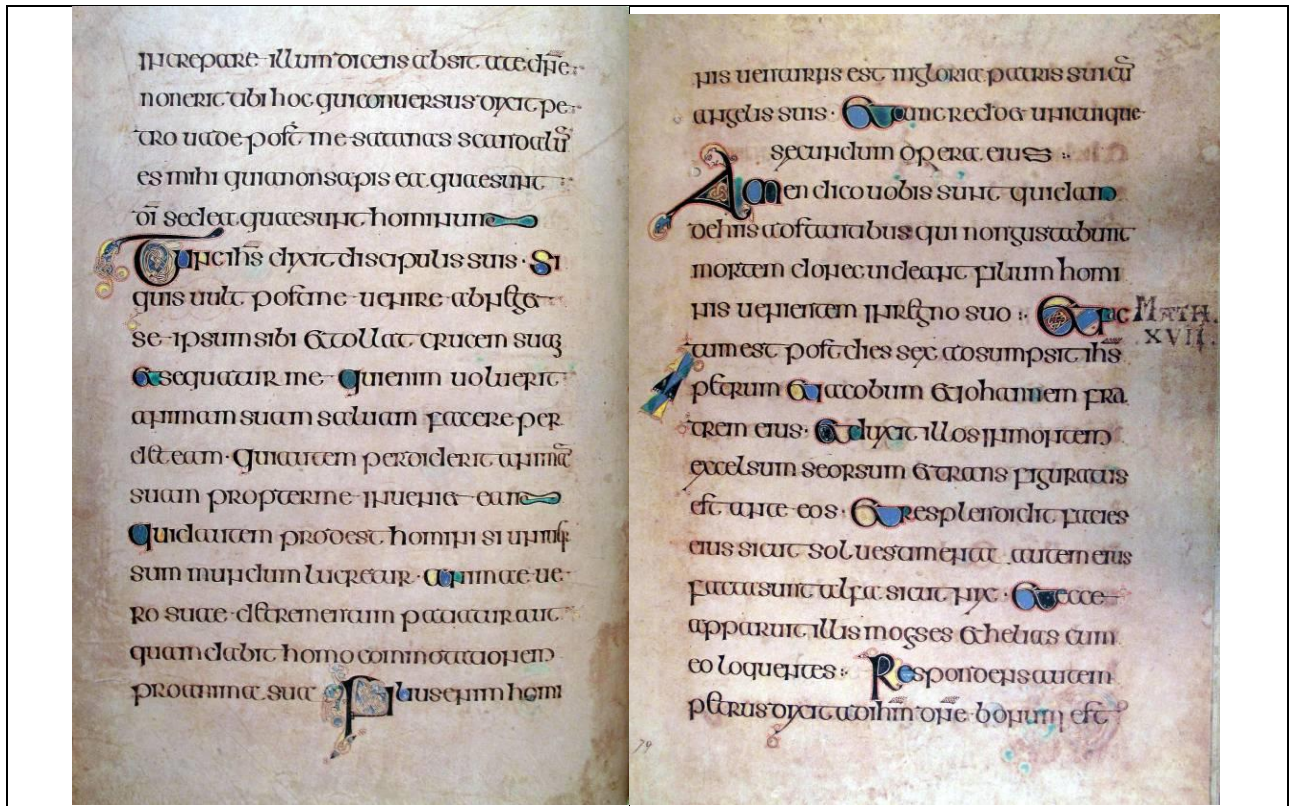 increpare illum dicens absit a te dn̄e
non erit tibi hoc qui conuersus dixit pe
tro uade post me satanas scandalū
es mihi quia non sapis ea quae sunt
dī sed ea quae sunt hominum
Tunc ihs dixit discipulis suis · Si
quis uult post me uenire abneget
se ipsum sibi & tollat crucem suam
& sequatur me qui enim uoluerit
animam suam saluam facere per
det eam · qui autem perdiderit animā
suam propter me inueniet eam
Quid autem prodest homini si uniuer
sum mundum lucretur · animae ue
ro suae detrementum patiatur aut
quam dabit homo commotationem
pro anima sua Filius enim homi
nis uenturus est in gloria patris sui cū
angelis suis · & tunc reddet unicuique
secundum opera eius :
Amen dico uobis sunt quidam
de hiis adstantibus qui non gustabunt
mortem donec uideant filium homi
nis uenientem in regno suo : & fac
MATH.
XVII.
tum est post dies sex adsumpsit ihs
petrum & iacobum & iohannem fra
trem eius · & duxit illos in montem
excelsum seorsum & transfiguratus
est ante eos · & resplendidit facies
eius sicut sol uestimenta autem eius
facta sunt alba sicut nix · & ecce
apparuit illis moyses & helias cum
eo loquentes : Respondens autem
petrus dixit ad ihm dn̄e bonum est
79